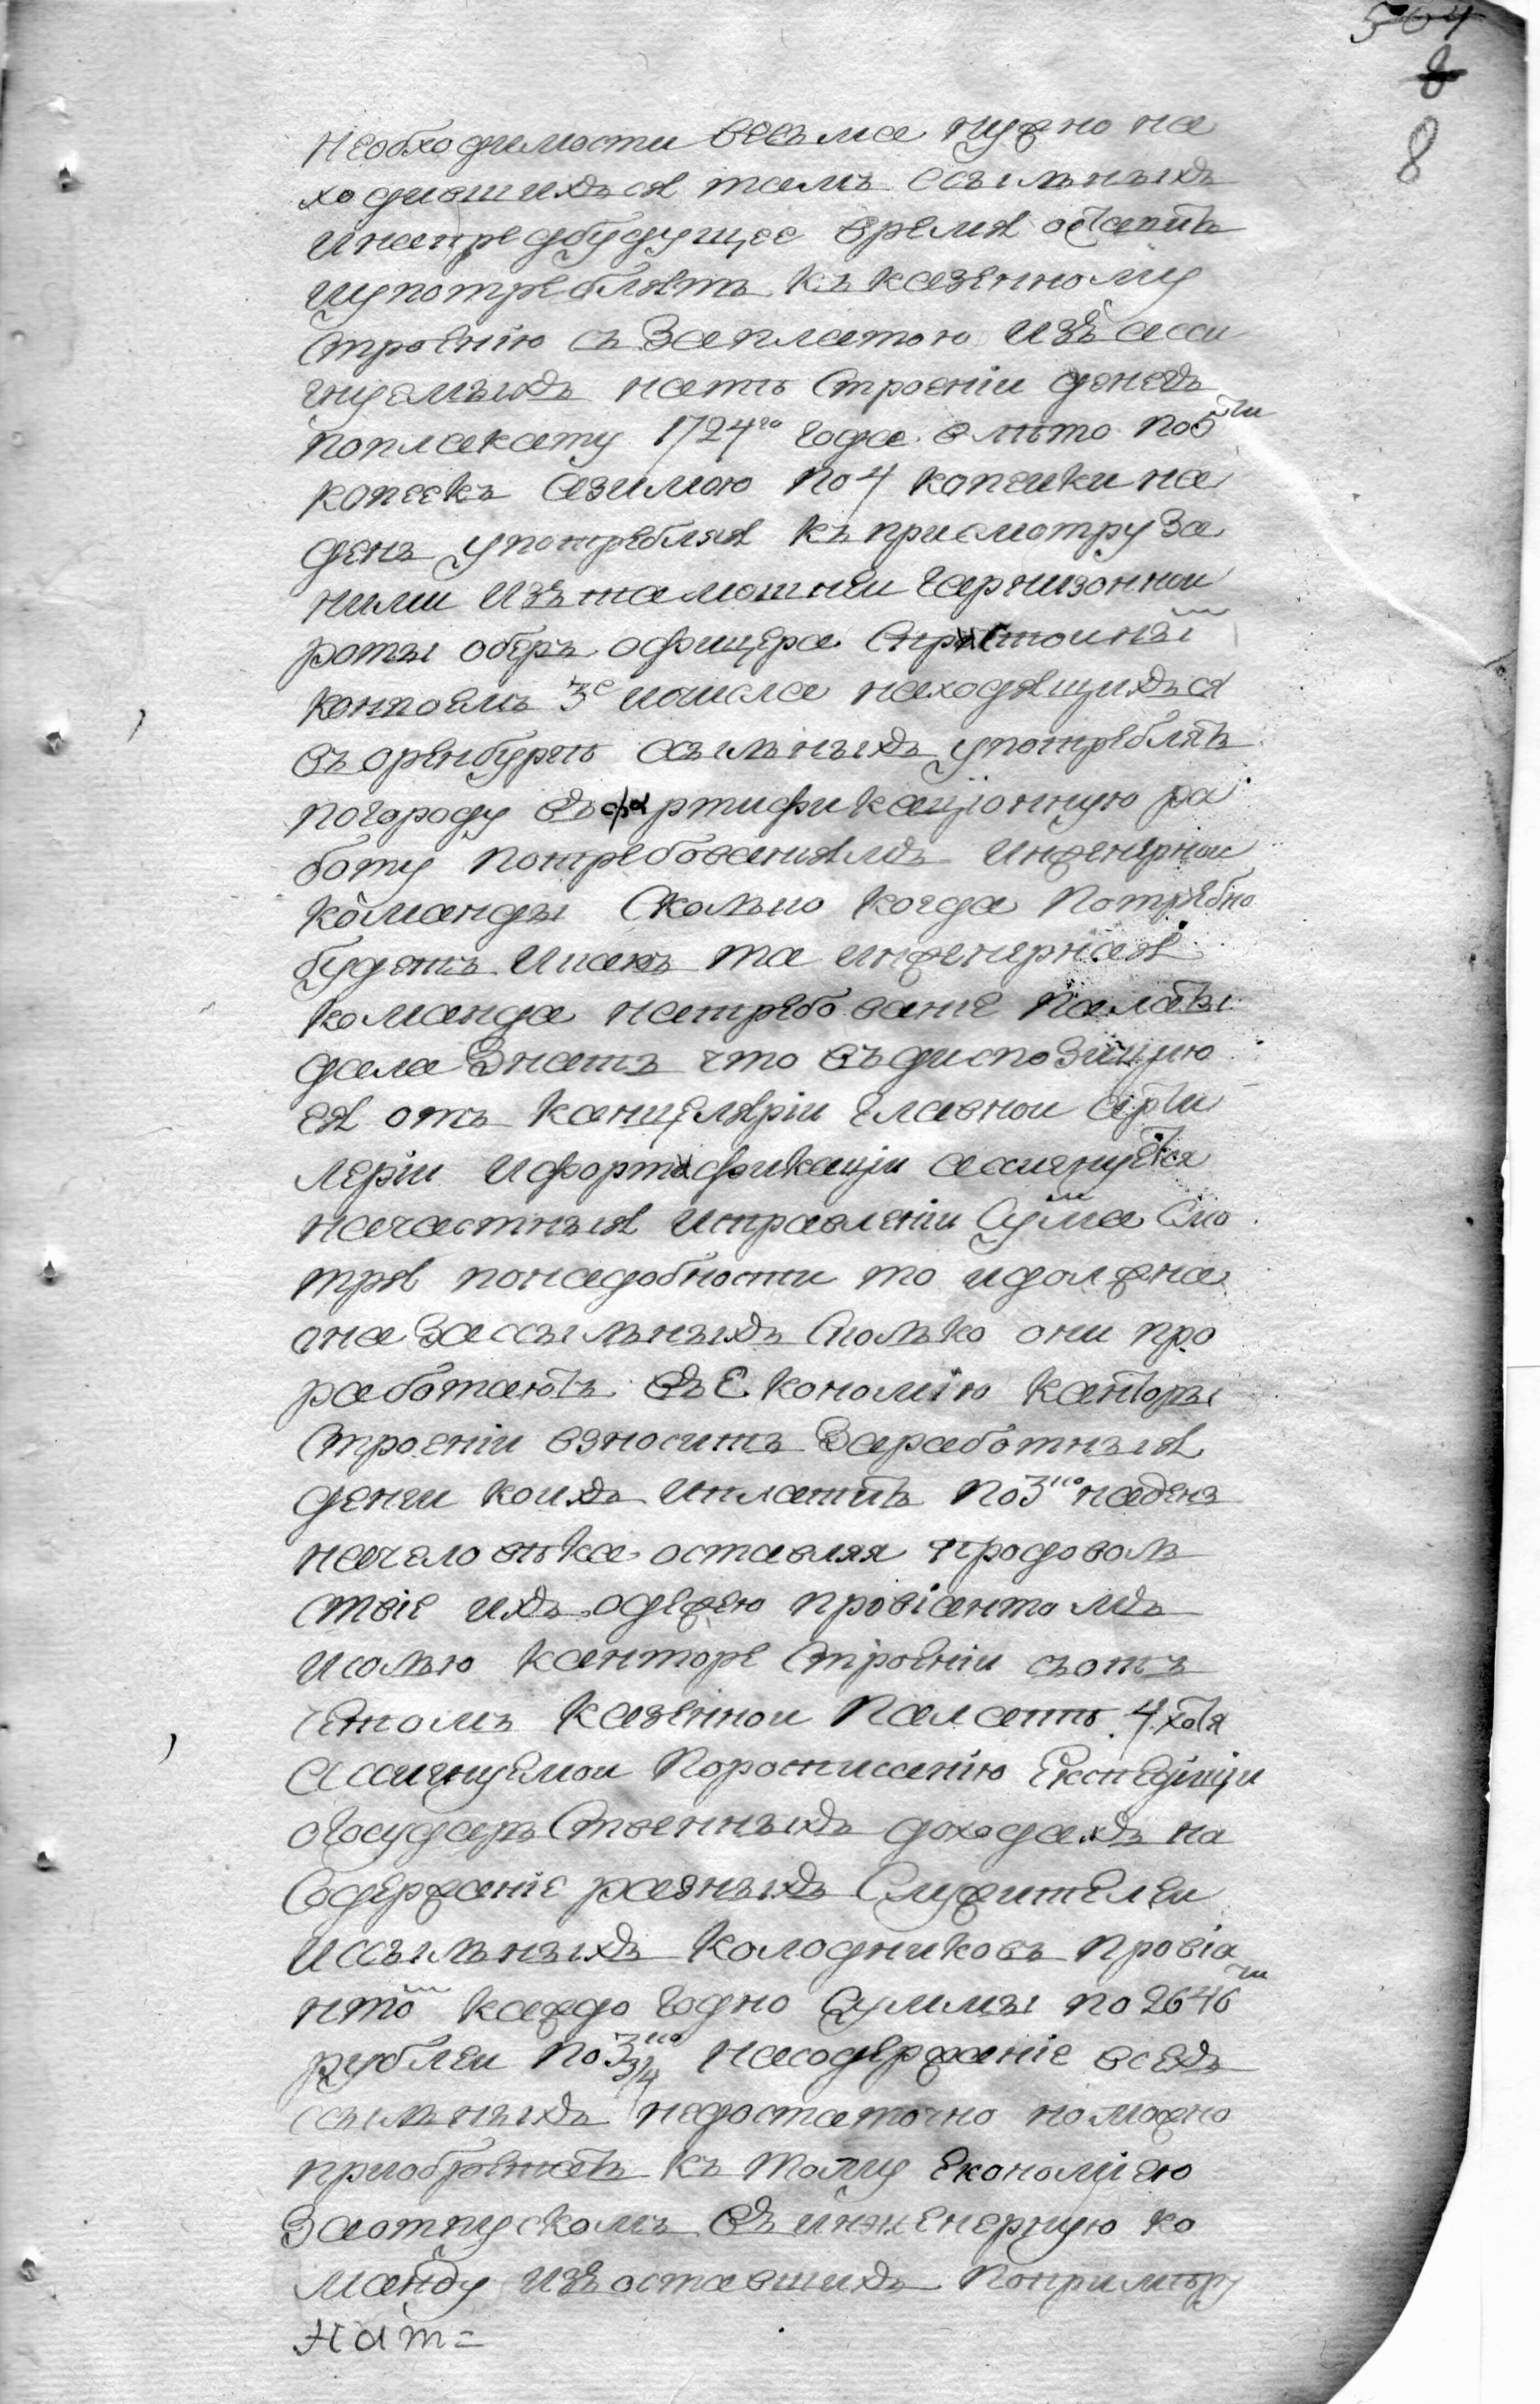 504
8
8
необходимости весьма нужно на
ходившихъся тамъ ссыльныхъ
инапредбудущее время оставить
иупотреблять къ казенному
строенїю съ заплатою изъ асси
гнуемыхъ натѣ строенїи денегъ
поплакату 1724го года влѣто по5ти
копеекъ азимою по 4 копейки на
день употребляя къ присмотру за
ними изъ тамошнеи гарнизоннои
роты оберъ офицера
конвоемъ 3е изчисла находящихъся
въ оренбургѣ ссыльныхъ употреблять
погороду въ фортификацїонную ра
боту потребованиямъ инженернои
команды сколько когда потребно
будетъ икакъ та инженерная
команда натребованїе палаты
дала знать что въдиспозицию
ея отъ канцелярїи главнои арти
лерїи ифортификацїи асигнуется
начастныя исправленїи сума смо
тря понадобности то идолжна
она зассыльныхъ сколько они про
работаютъ въ Економїю канторы
строенїи взносить заработныя
денги коихъ иплатить по3 надень
начеловѣка оставляя продоволь
ствїе ихъ одежею провїантомъ
исолью канторе строенїи сът
четомъ казеннои палатѣ 4. хотя
ассигнуемои поросписанїю Експедицїи
огосударственныхъ доходахъ на
содержанїе разныхъ служителеи
иссыльныхъ колодниковъ провїа
нтом каждо годно суммы по 2646ти
рублеи по 3 3/4 насодержанїе всехъ
ссыльныхъ недостаточно но можно
приобретать къ тому Економїею
заотпускомъ въ инженерную ко
манду изъ оставшихъ попримѣру
нат=